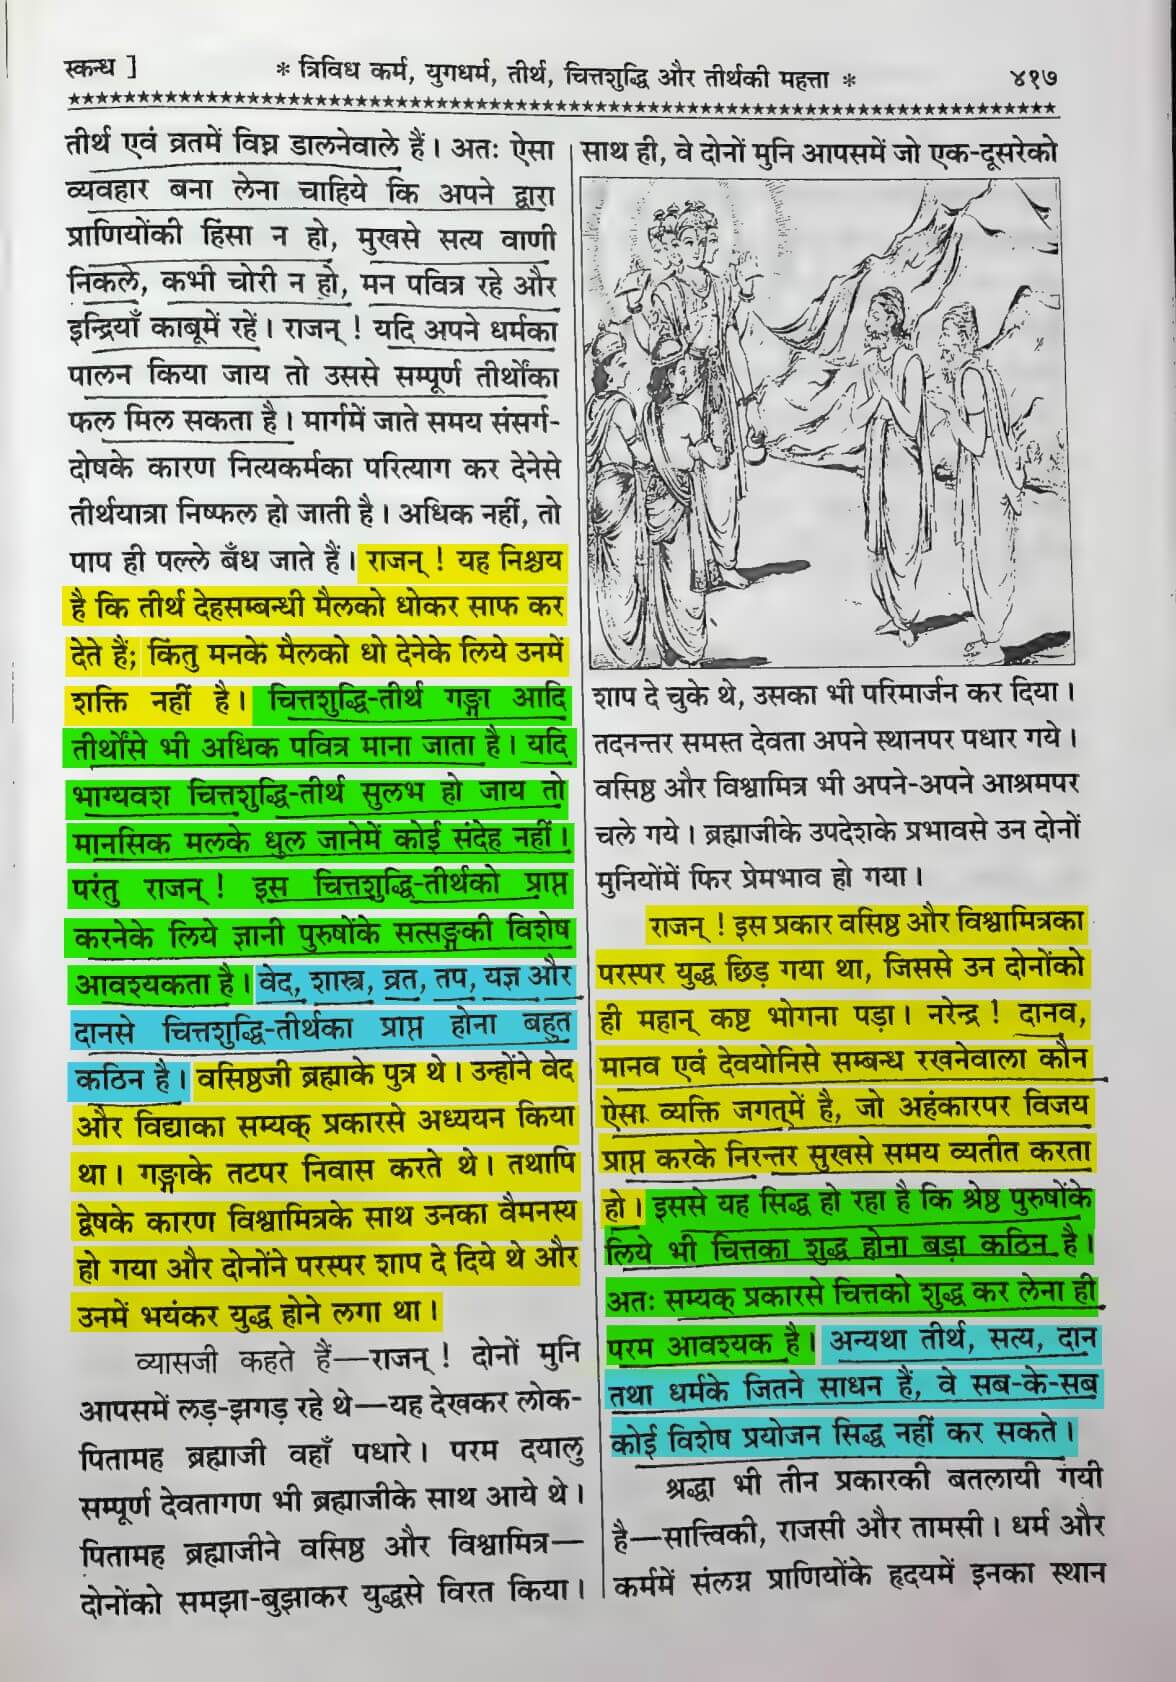 स्कन्ध ]
* त्रिविध कर्म, युगधर्म, तीर्थ, चित्तशुद्धि और तीर्थकी महत्ता *
४१७
तीर्थ एवं व्रतमें विघ्न डालनेवाले हैं। अतः ऐसा
व्यवहार बना लेना चाहिये कि अपने द्वारा
प्राणियोंकी हिंसा न हो, मुखसे सत्य वाणी
निकले, कभी चोरी न हो, मन पवित्र रहे और
इन्द्रियाँ काबूमें रहें। राजन् ! यदि अपने धर्मका
पालन किया जाय तो उससे सम्पूर्ण तीर्थोंका
फल मिल सकता है। मार्गमें जाते समय संसर्ग-
दोषके कारण नित्यकर्मका परित्याग कर देनेसे
तीर्थयात्रा निष्फल हो जाती है। अधिक नहीं, तो
पाप ही पल्ले बँध जाते हैं। राजन् ! यह निश्चय
है कि तीर्थ देहसम्बन्धी मैलको धोकर साफ कर
देते हैं; किंतु मनके मैलको धो देनेके लिये उनमें
शक्ति नहीं है। चित्तशुद्धि-तीर्थ गङ्गा आदि
तीर्थोंसे भी अधिक पवित्र माना जाता है। यदि
भाग्यवश चित्तशुद्धि-तीर्थ सुलभ हो जाय तो
मानसिक मलके धुल जानेमें कोई संदेह नहीं।
परंतु राजन् ! इस चित्तशुद्धि-तीर्थको प्राप्त
करनेके लिये ज्ञानी पुरुषोंके सत्सङ्गकी विशेष
आवश्यकता है। वेद, शास्त्र, व्रत, तप, यज्ञ और
दानसे चित्तशुद्धि-तीर्थका प्राप्त होना बहुत
कठिन है। वसिष्ठजी ब्रह्माके पुत्र थे। उन्होंने वेद
और विद्याका सम्यक् प्रकारसे अध्ययन किया
था। गङ्गाके तटपर निवास करते थे। तथापि
द्वेषके कारण विश्वामित्रके साथ उनका वैमनस्य
हो गया और दोनोंने परस्पर शाप दे दिये थे और
उनमें भयंकर युद्ध होने लगा था।
व्यासजी कहते हैं—राजन् ! दोनों मुनि
आपसमें लड़-झगड़ रहे थे—यह देखकर लोक-
पितामह ब्रह्माजी वहाँ पधारे। परम दयालु
सम्पूर्ण देवतागण भी ब्रह्माजीके साथ आये थे।
पितामह ब्रह्माजीने वसिष्ठ और विश्वामित्र—
दोनोंको समझा-बुझाकर युद्धसे विरत किया।
साथ ही, वे दोनों मुनि आपसमें जो एक-दूसरेको
शाप दे चुके थे, उसका भी परिमार्जन कर दिया।
तदनन्तर समस्त देवता अपने स्थानपर पधार गये।
वसिष्ठ और विश्वामित्र भी अपने-अपने आश्रमपर
चले गये। ब्रह्माजीके उपदेशके प्रभावसे उन दोनों
मुनियोंमें फिर प्रेमभाव हो गया।
राजन् ! इस प्रकार वसिष्ठ और विश्वामित्रका
परस्पर युद्ध छिड़ गया था, जिससे उन दोनोंको
ही महान् कष्ट भोगना पड़ा। नरेन्द्र ! दानव,
मानव एवं देवयोनिसे सम्बन्ध रखनेवाला कौन
ऐसा व्यक्ति जगत्‌में है, जो अहंकारपर विजय
प्राप्त करके निरन्तर सुखसे समय व्यतीत करता
हो। इससे यह सिद्ध हो रहा है कि श्रेष्ठ पुरुषोंके
लिये भी चित्तका शुद्ध होना बड़ा कठिन है।
अतः सम्यक् प्रकारसे चित्तको शुद्ध कर लेना ही
परम आवश्यक है। अन्यथा तीर्थ, सत्य, दान
तथा धर्मके जितने साधन हैं, वे सब-के-सब
कोई विशेष प्रयोजन सिद्ध नहीं कर सकते।
श्रद्धा भी तीन प्रकारकी बतलायी गयी
है—सात्त्विकी, राजसी और तामसी। धर्म और
कर्ममें संलग्न प्राणियोंके हृदयमें इनका स्थान